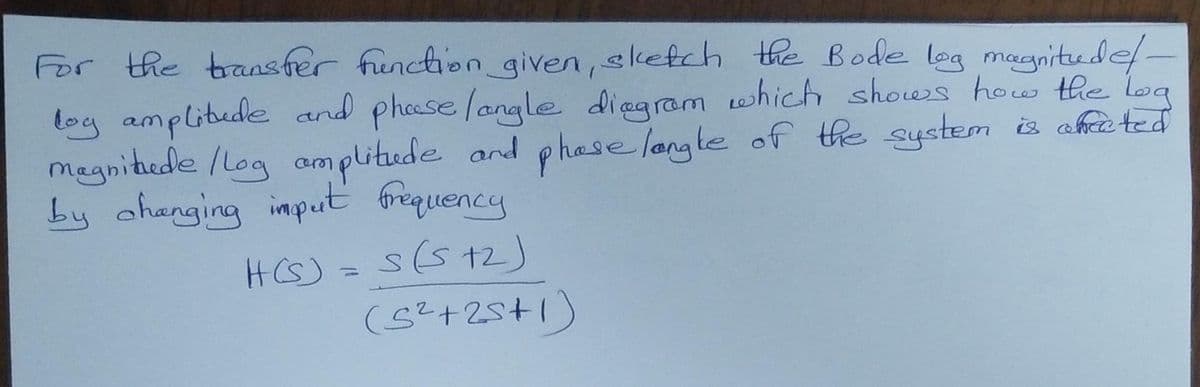 For the transfer function given, sketch the Bode log magnitude/-
log amplitude and phase/angle diagram which shows how the log
magnitude /log amplitude and phase/angle of the system is affected
by changing input frequency
H(S) = S(S+2)
(S²+2S+1)